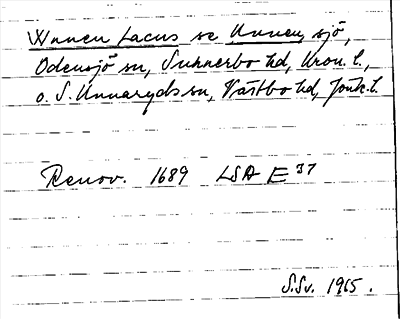 Wnnen Lacus se Unnen, sjö,
Odensjö sn, Sunnerbo hd, Kron. l.,
o. S. Unnaryds sn, Västbo hd, Jönk. l.
Renov. 1689 LSA E³⁷
S.Sv. 1965.